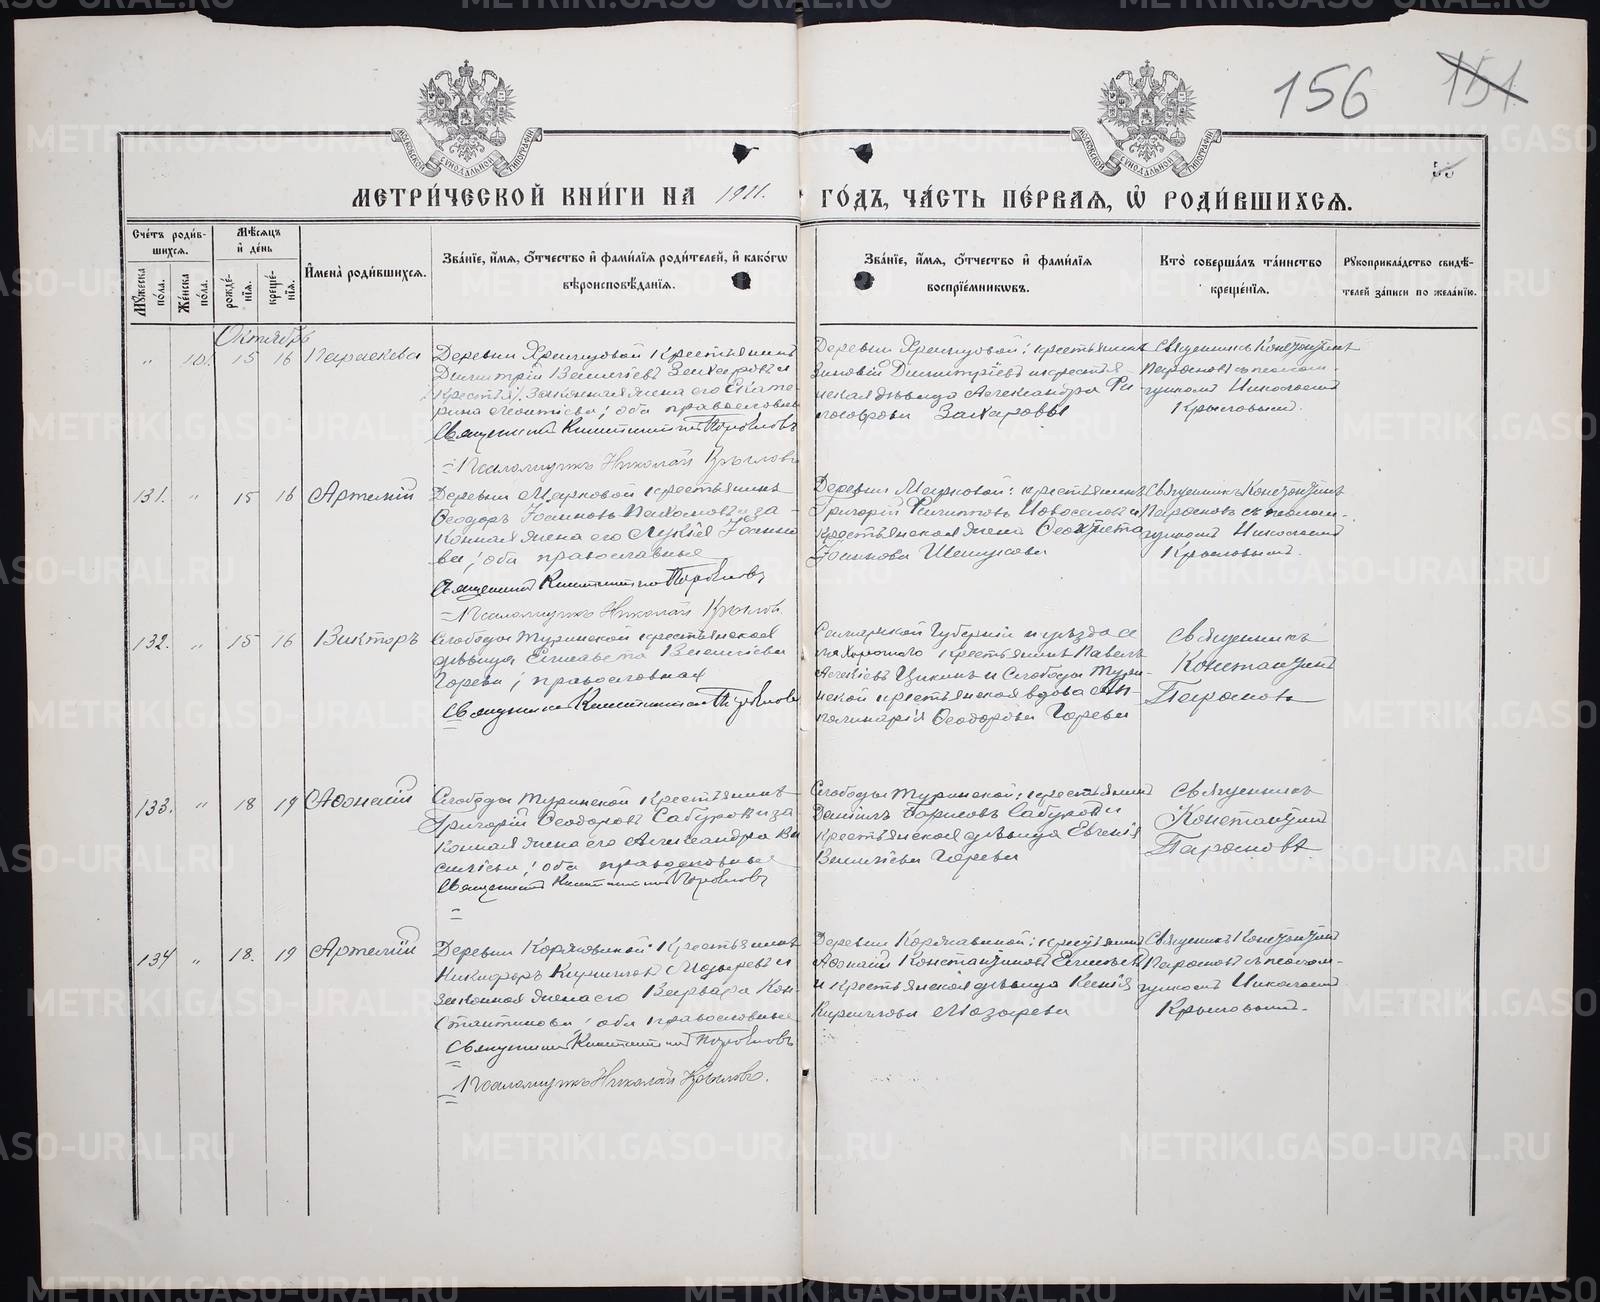 156 151
55
МОСКОВСКОЙ СѴНОДАЛЬНОЙ ТИПОГРАФІИ
МОСКОВСКОЙ СѴНОДАЛЬНОЙ ТИПОГРАФІИ
МЕТРИ́ЧЕСКОЙ КНИ́ГИ НА 1911. ГО́ДЪ, ЧА́СТЬ ПЕ́РВАЯ, Ѽ РОДИ́ВШИХСЯ.
Сче́тъ роди́в-
шихся.
Мꙋ́жеска по́ла.
Же́нска по́ла.
Мѣ́сяцъ и҆ де́нь
рожде́-
нїя.
креще́-
нїя.
И҆мена̀ роди́вшихся.
Зва́нїе, и҆́мя, ѻ҆́тчество и҆ фами́лїя роди́телей, и҆ како́гѡ
вѣроисповѣ́данїя.
Зва́нїе, и҆́мя, ѻ҆́тчество и҆ фами́лїя
воспрїе́мникѡвъ.
Кто̀ соверша́лъ та́инство
креще́нїя.
Рꙋкоприкла́дство свидѣ́-
телей за́писи по жела́нїю.
Октябрь
" 101. 15 16 Параскева
Деревни Хрѣнцовой крестьянинъ
Димитрій Васильевъ Захаровъ и
законная жена его Екате-
рина Леонтьева; оба православные
Священникъ Константинъ Парѳеновъ
Псаломщикъ Николай Крыловъ
Деревни Хрѣнцовой: крестьянинъ
Зиновій Димитріевъ и крестья
нская дѣвица Александра
Захаровы
Священникъ Константинъ
Парѳеновъ съ псалом-
щикомъ Николаемъ
Крыловымъ.
131. " 15 16 Артемій
Деревни Марковой крестьянинъ
Ѳеодоръ Іоанновъ и за-
конная жена его Лукія Іоанно
ва; оба православные
Священникъ Константинъ Парѳеновъ
Псаломщикъ Николай Крыловъ
Деревни Марковой: крестьянинъ
Григорій Филипповъ Новоселовъ и
крестьянская жена Ѳеоктиста
Іоаннова
Священникъ Константинъ
Парѳеновъ съ псалом-
щикомъ Николаемъ
Крыловымъ.
132. " 15 16 Викторъ
Слободы Туринской крестьянская
дѣвица Елисавета Васильева
Горева; православная
Священникъ Константинъ Парѳеновъ
Самарской Губерніи и уѣзда се
ла Хорошаго крестьянинъ Павелъ
Алексѣевъ и Слободы Тури-
нской крестьянская вдова Ап-
полинарія Ѳеодорова Горева
Священникъ
Константинъ
Парѳеновъ
133. " 18 19 Аѳонасій
Слободы Туринской крестьянинъ
Григорій Ѳеодоровъ Сабуровъ и за
конная жена его Александра Ва
сильева; оба православные
Священникъ Константинъ Парѳеновъ
Слободы Туринской: крестьянинъ
Даніилъ Борисовъ Сабуровъ и
крестьянская дѣвица Евгенія
Васильева Горева
Священникъ
Константинъ
Парѳеновъ
134 " 18. 19 Артемій
Деревни Корякиной: Крестьянинъ
Никифоръ Кирилловъ Мозыревъ и
законная жена его Варвара Кон-
стантинова; оба православные
Священникъ Константинъ Парѳеновъ
Псаломщикъ Николай Крыловъ.
Деревни Корякиной: крестьянинъ
Аѳонасій Константиновъ
и крестьянская дѣвица Ксенія
Кириллова Мозырева
Священникъ Константинъ
Парѳеновъ съ псалом-
щикомъ Николаемъ
Крыловымъ.
METRIKI.GASO-URAL.RU